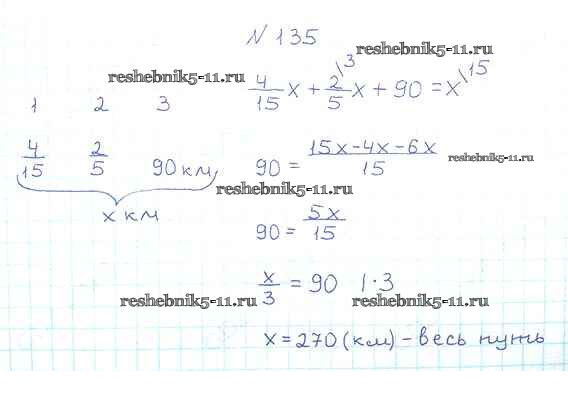 N 135
reshebnik5-11.ru
reshebnik5-11.ru
1 2 3
4/15 x + 2/5 \3 x + 90 = x \15
4/15 2/5 90 км
x км
90 = (15x-4x-6x)/15
reshebnik5-11.ru
reshebnik5-11.ru
90 = 5x/15
x/3 = 90 | · 3
reshebnik5-11.ru
reshebnik5-11.ru
x = 270 (км) - весь путь